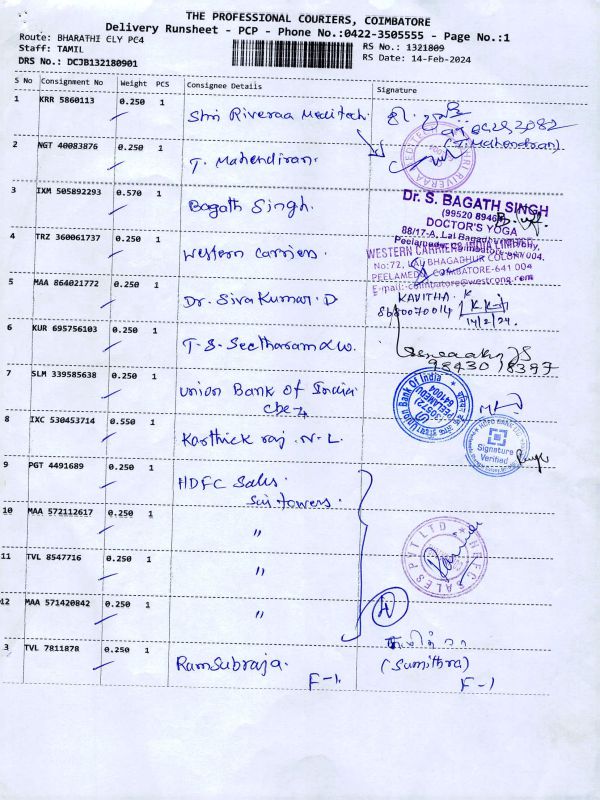 THE PROFESSIONAL COURIERS, COIMBATORE
Delivery Runsheet - PCP - Phone No.:0422-3505555 - Page No.:1
Route: BHARATHI CLY PC4
Staff: TAMIL
RS No.: 1321809
RS Date: 14-Feb-2024
DRS No.: DCJB132180901
S No Consignment No Weight PCS Consignee Details Signature
1 KRR 5860113 0.250 1 Shri Riveraa Meditech.
(T. Mahendiran).
2 NGT 40083876 0.250 1 T. Mahendiran.
3 IXM 505892293 0.570 1 Bagath Singh.
Dr. S. BAGATH SINGH
DOCTOR'S YOGA
88/17-A, Lal Bagadhur
4 TRZ 360061737 0.250 1 Western Carriers.
WESTERN CARRIERS INDIA LIMITED
No:72, LAL BHAGADHUR COLONY
PEELAMEDU, COIMBATORE-641 004
5 MAA 864021772 0.250 1 Dr. Siva Kumar. D
KAVITHA. K
8680070014
14/2/24.
6 KUR 695756103 0.250 1 T. S. Seetharam
98430 18397
7 SLM 339585638 0.250 1 Union Bank Of India
Union Bank Of India
641004
8 IXC 530453714 0.550 1 Karthick raj. N. L.
Signature
Verified
9 PGT 4491689 0.250 1 HDFC Sales.
Sai towers.
10 MAA 572112617 0.250 1 "
SALES PVT LTD
11 TVL 8547716 0.250 1 "
12 MAA 571420842 0.250 1 "
4
3 TVL 7811878 0.250 1 Ramsubraja.
(Sumithra)
F-1.
F-1